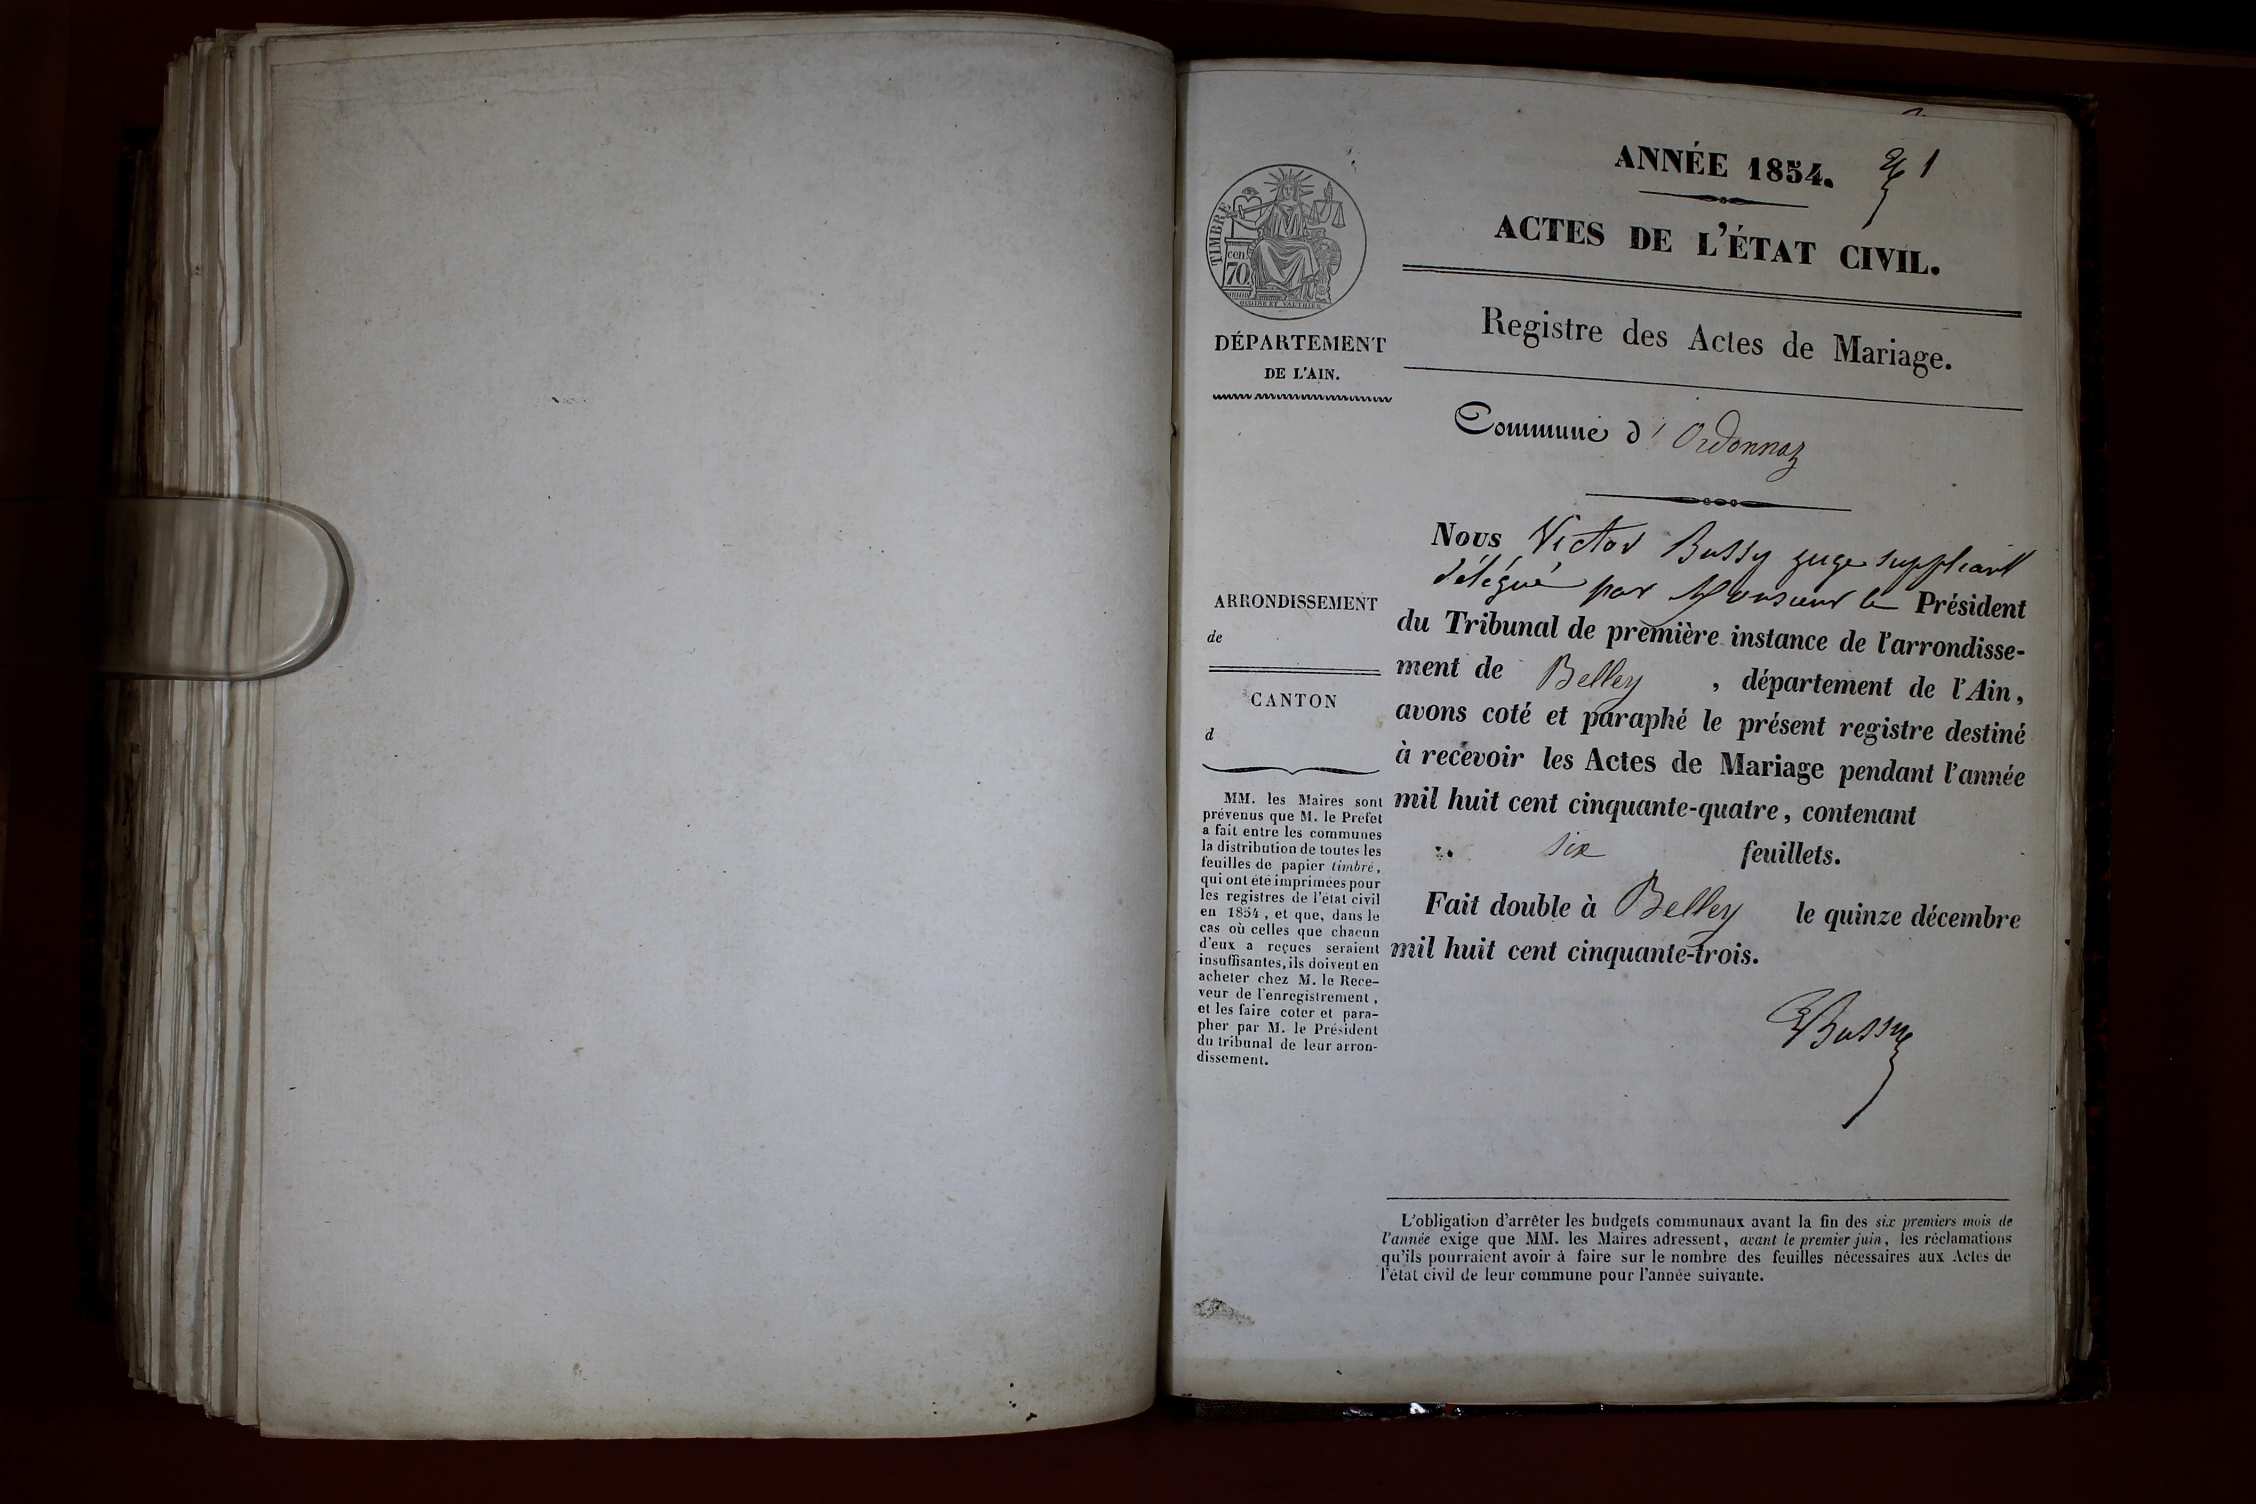 ANNÉE 1854. 1
ACTES DE L'ÉTAT CIVIL.
Registre des Actes de Mariage.
TIMBRE
cen.
70.
DÉPARTEMENT
DE L'AIN.
Commune d' Ordonnaz
Nous Victor Bussy juge suppléant
délégué par Monsieur le Président
du Tribunal de première instance de l'arrondisse-
ment de Belley, département de l'Ain,
avons coté et paraphé le présent registre destiné
à recevoir les Actes de Mariage pendant l'année
mil huit cent cinquante-quatre, contenant
six feuillets.
Fait double à Belley le quinze décembre
mil huit cent cinquante-trois.
Bussy
ARRONDISSEMENT
de
CANTON
d
MM. les Maires sont
prévenus que M. le Prefet
a fait entre les communes
la distribution de toutes les
feuilles de papier timbré,
qui ont été imprimées pour
les registres de l'état civil
en 1854, et que, dans le
cas où celles que chacun
d'eux a reçues seraient
insuffisantes, ils doivent en
acheter chez M. le Rece-
veur de l'enregistrement,
et les faire coter et para-
pher par M. le Président
du tribunal de leur arron-
dissement.
L'obligation d'arrêter les budgets communaux avant la fin des six premiers mois de
l'année exige que MM. les Maires adressent, avant le premier juin, les réclamations
qu'ils pourraient avoir à faire sur le nombre des feuilles nécessaires aux Actes de
l'état civil de leur commune pour l'année suivante.